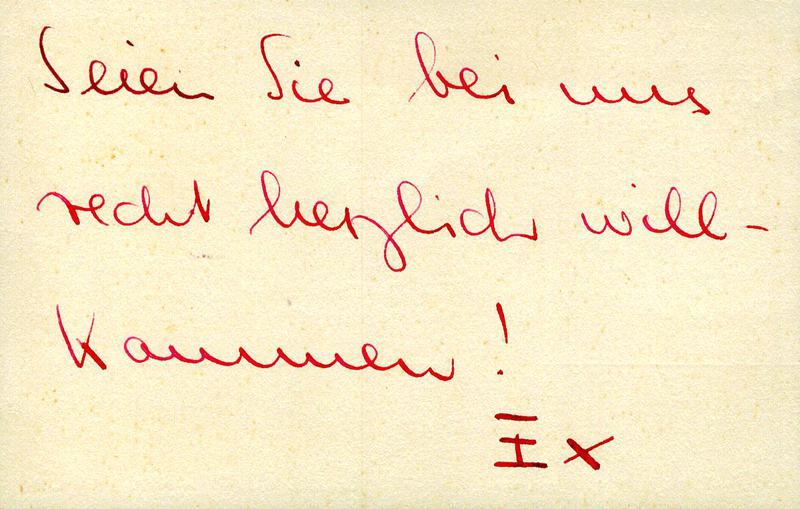 Seien Sie bei uns
recht herzlich will-
kommen!